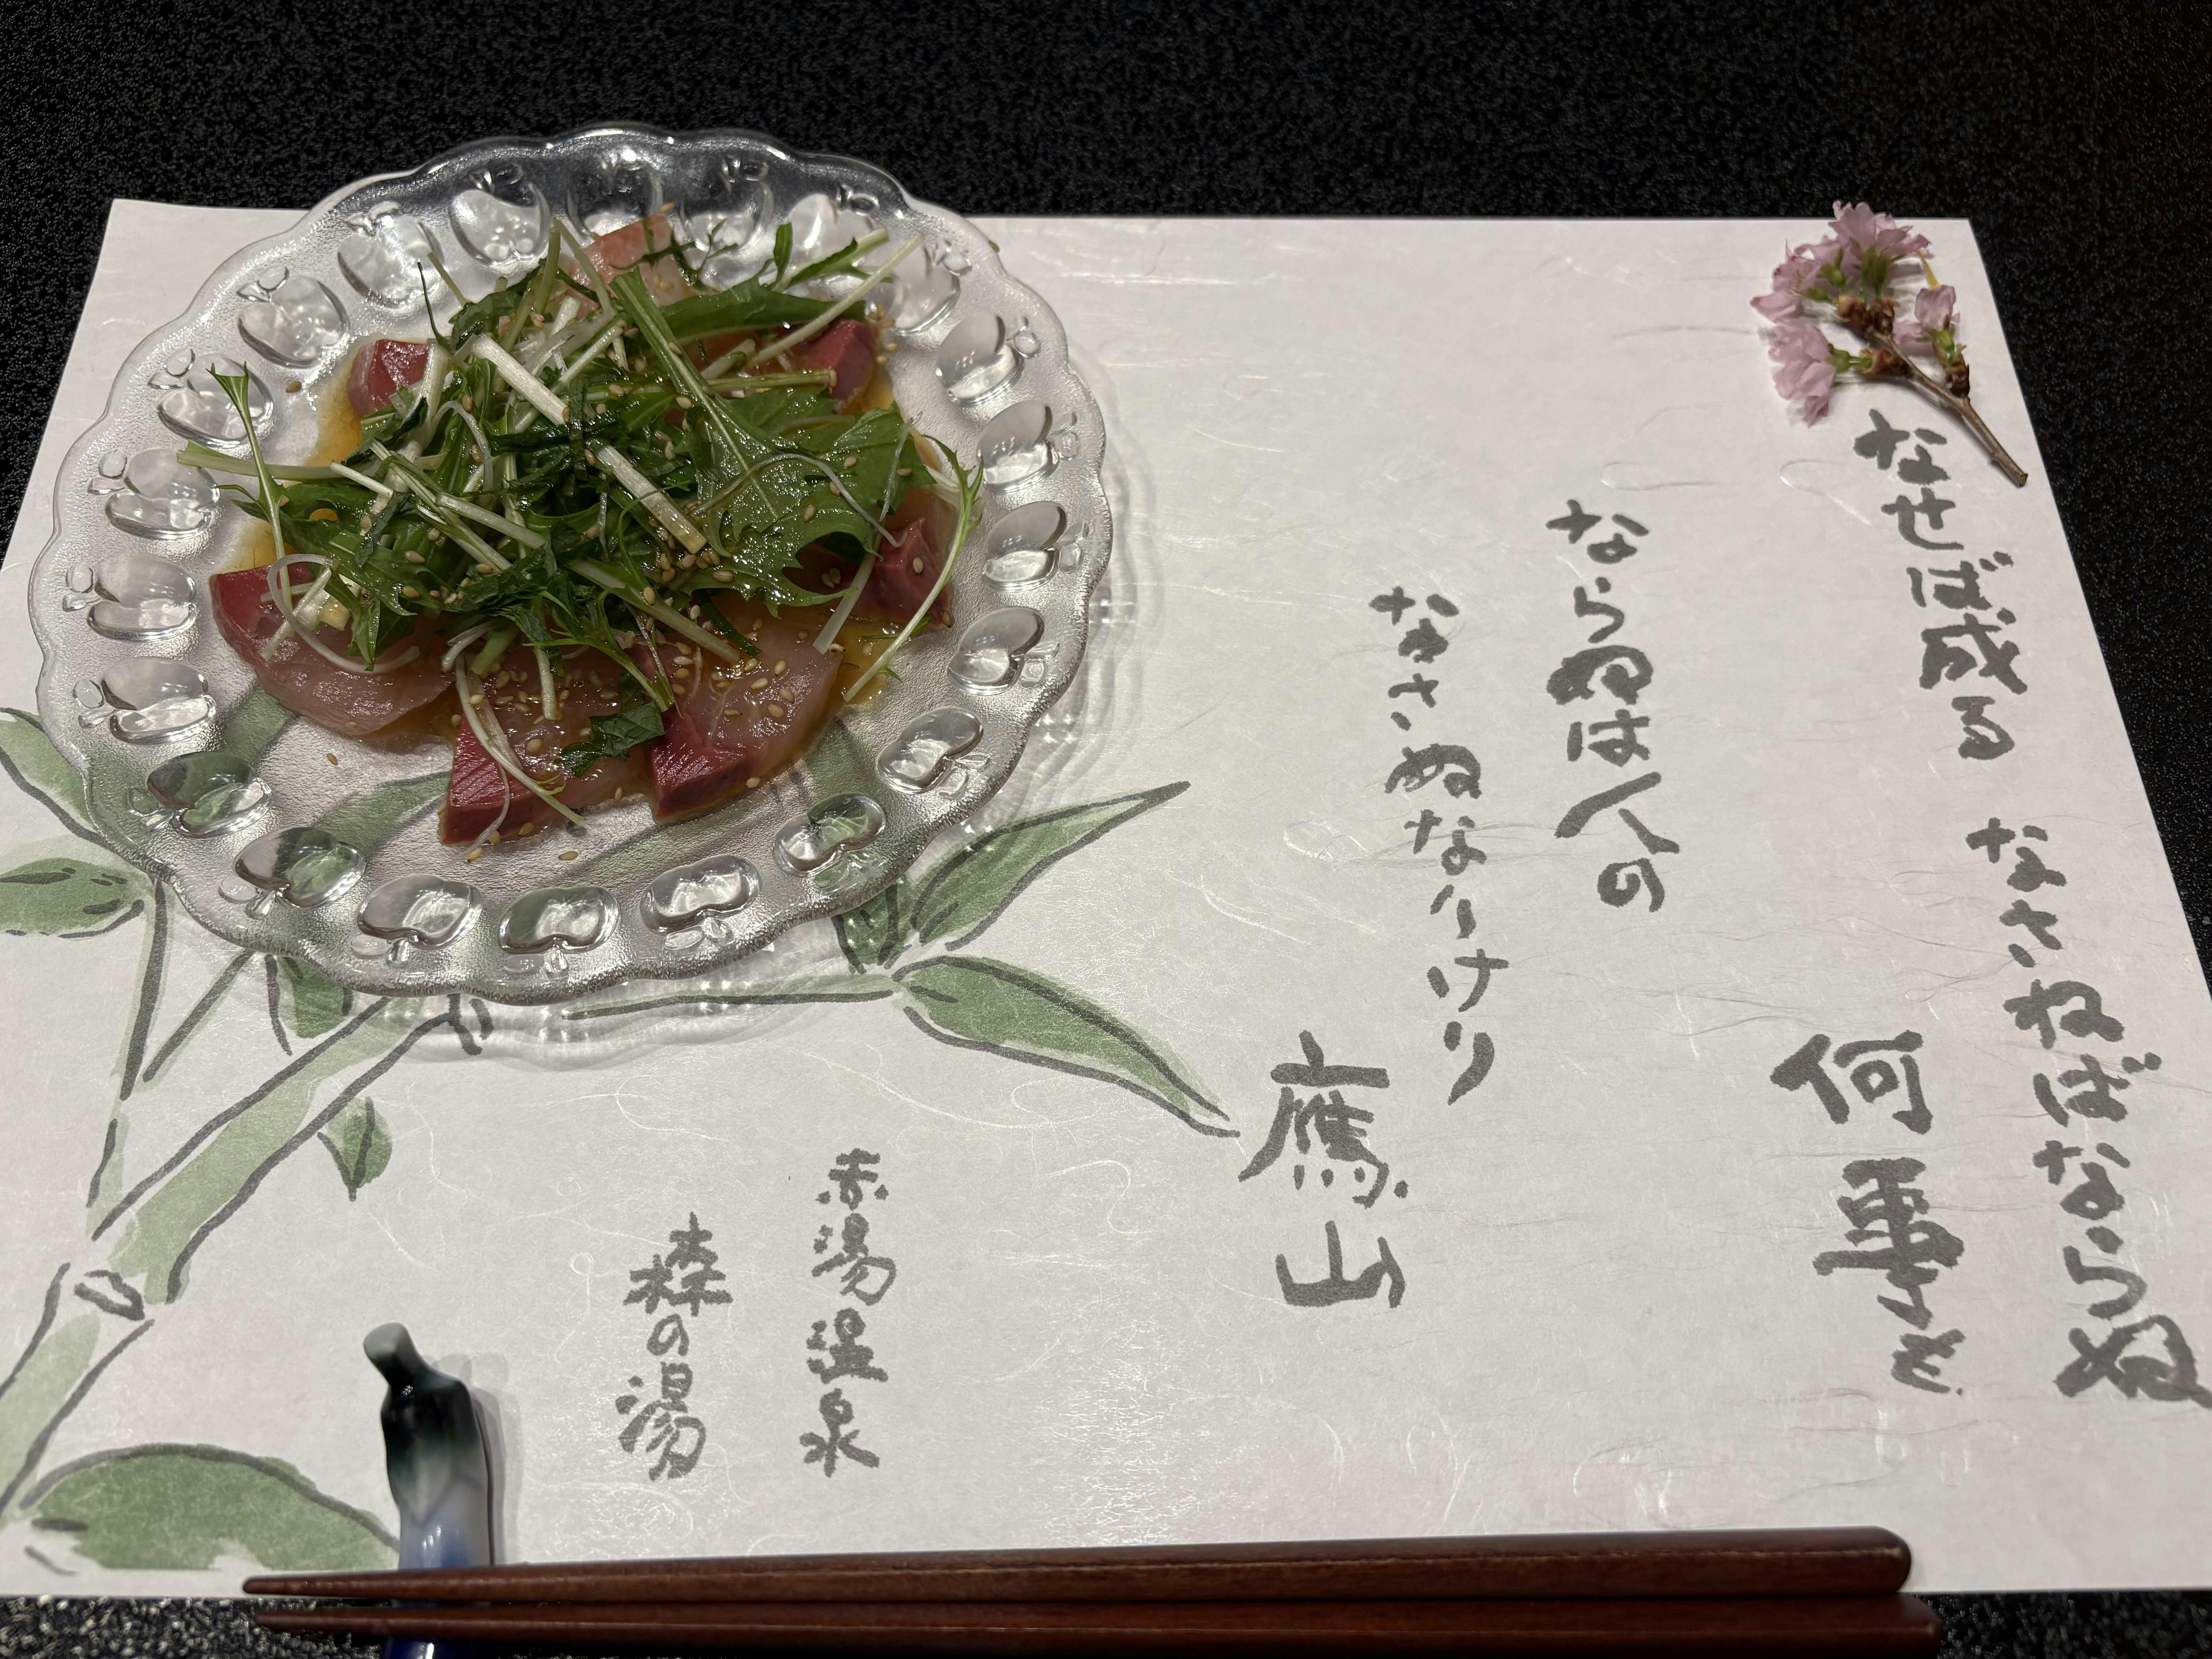 なせば成る
なさねばならぬ
何事を
ならぬは人の
なさぬなりけり
鷹山
赤湯温泉
森の湯